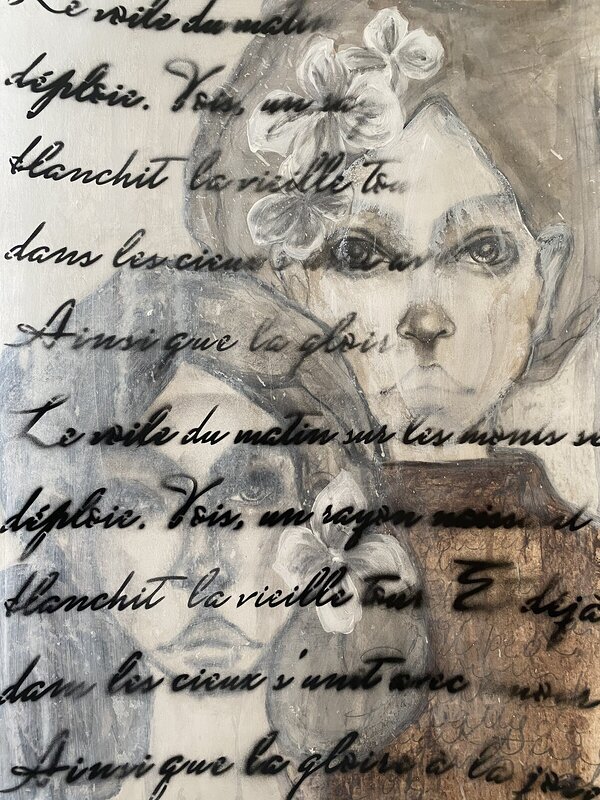 Le voile du matin
déploie. Vois, un
blanchit la vieille tou
dans les cieux
Ainsi que la gloire
Le voile du matin sur les monts se
déploie. Vois, un rayon naissant
blanchit la vieille tour. E déjà
dans les cieux s'unit avec
Ainsi que la gloire a la joie